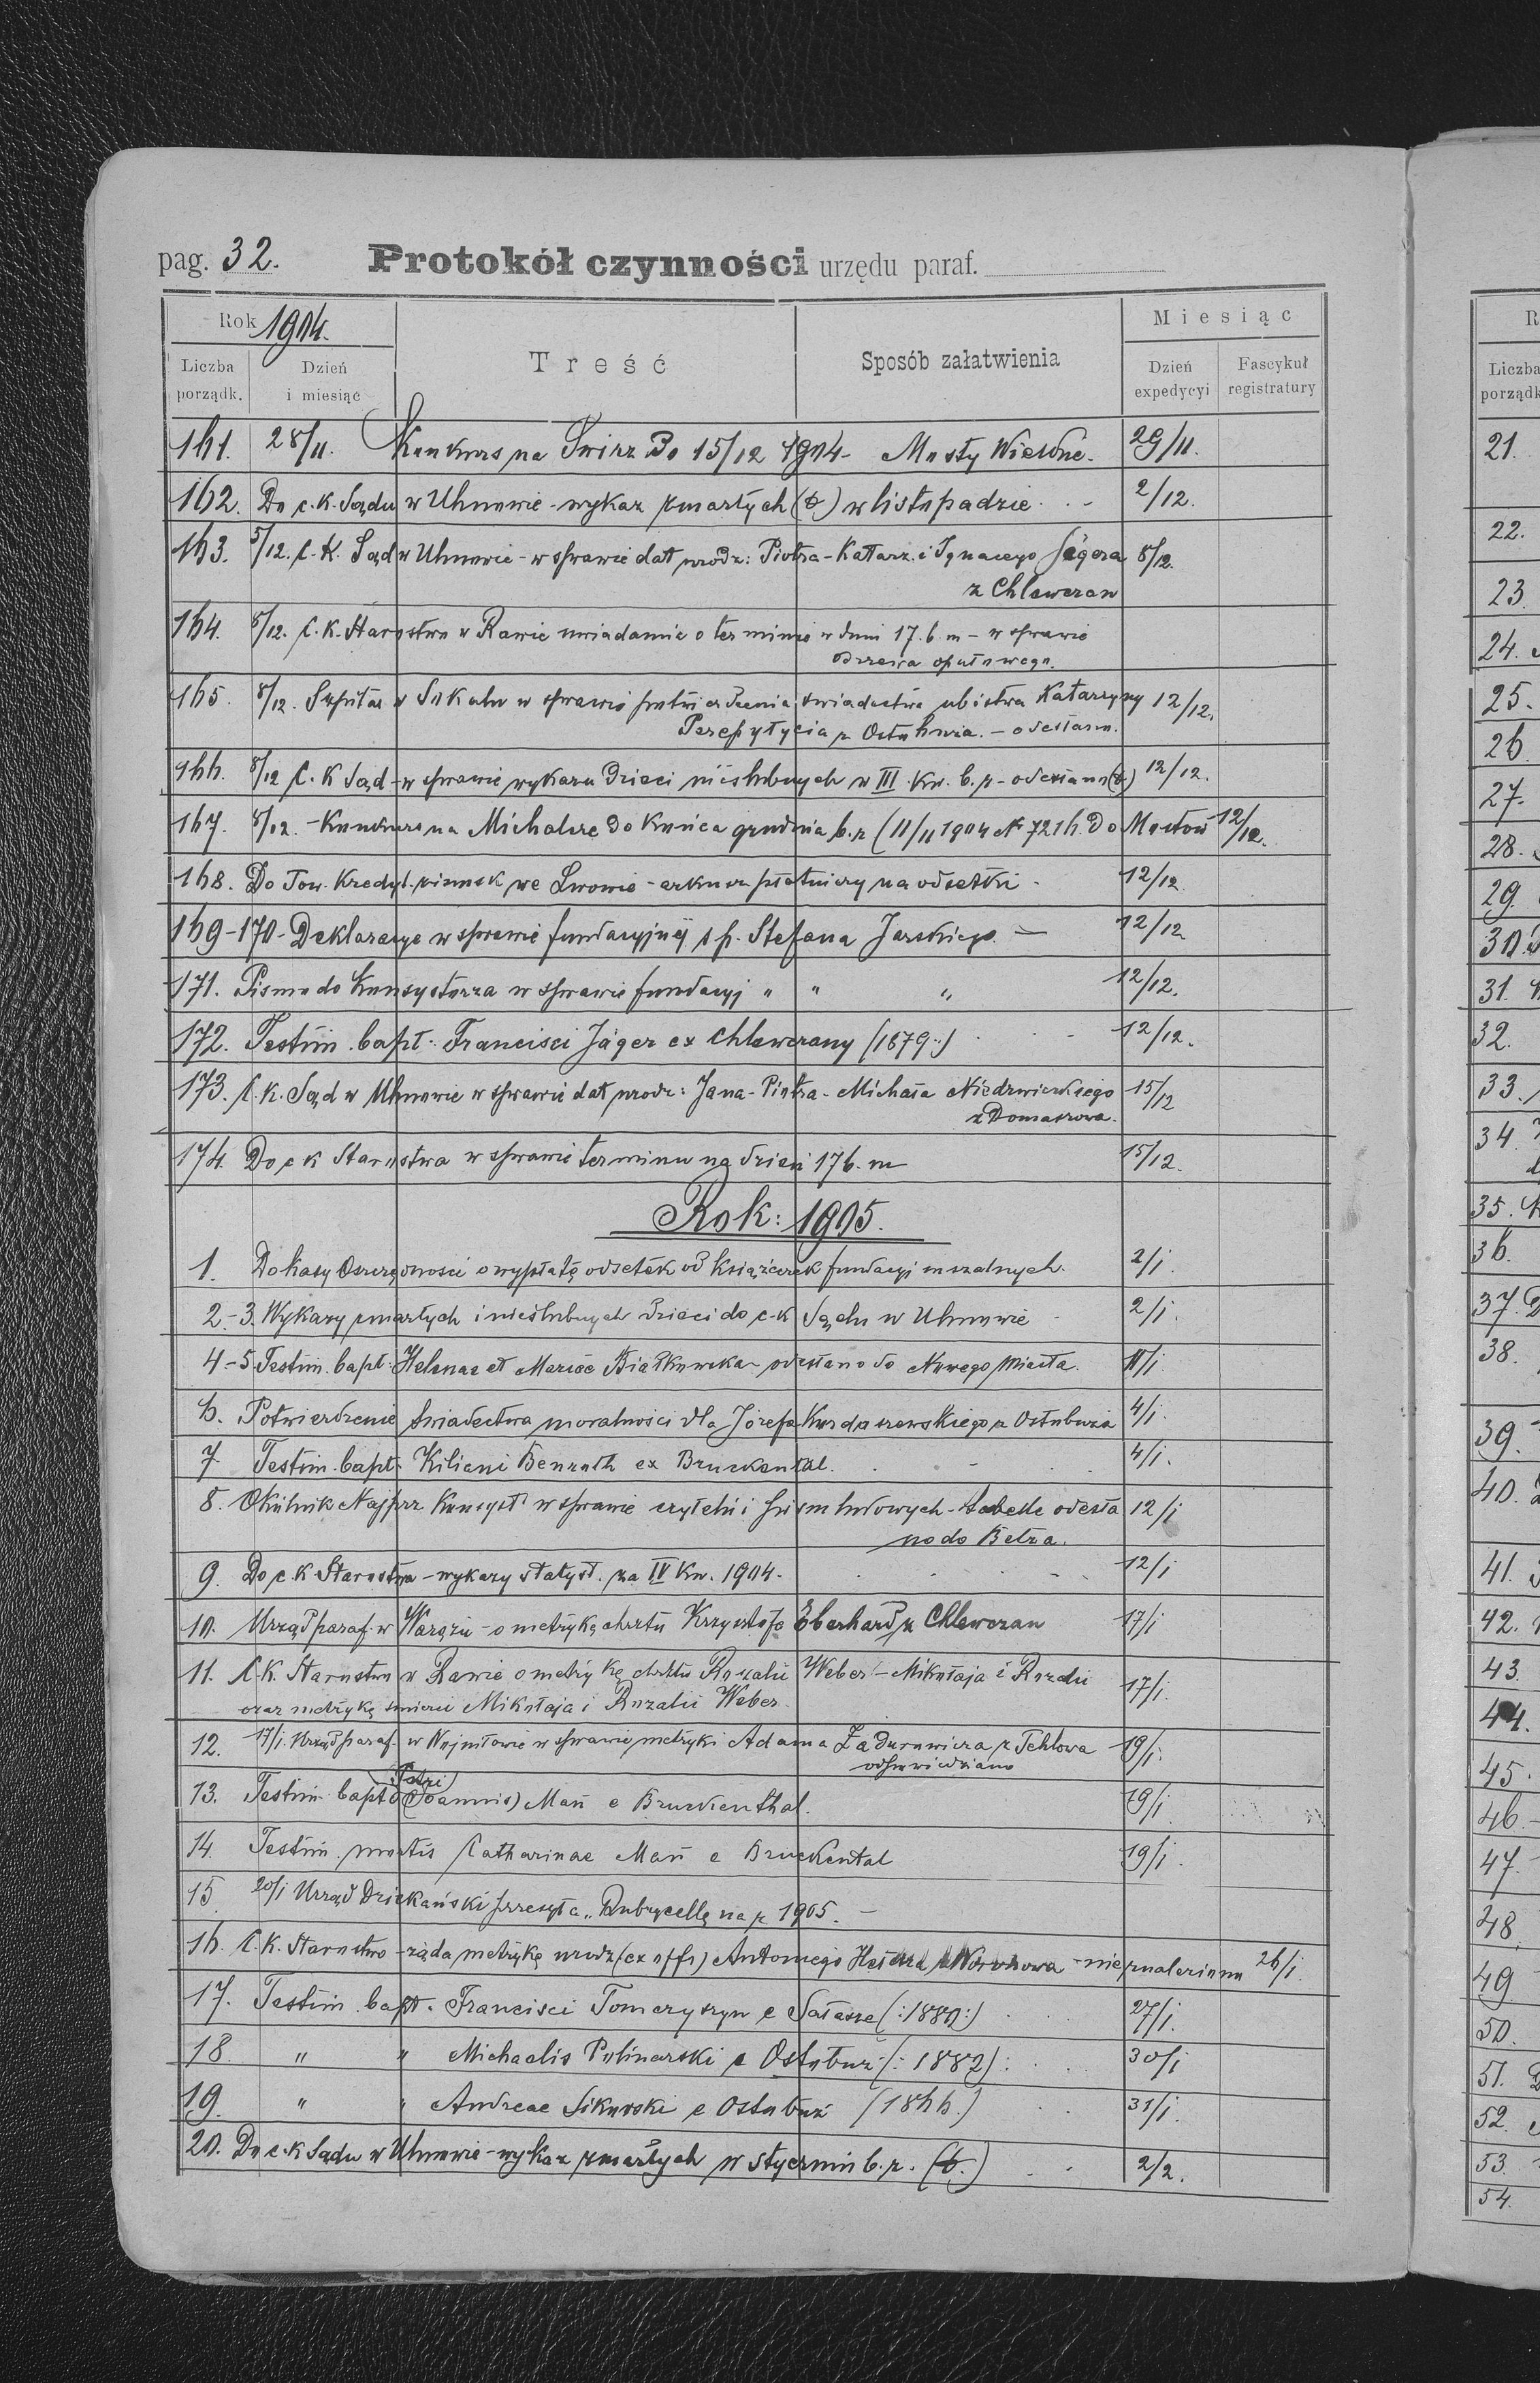 pag. 32. Protokół czynności urzędu paraf.
Rok 1904.
Treść
Sposób załatwienia
Miesiąc
Liczba porządk.
Dzień i miesiąc
Dzień expedycyi
Fascykuł registratury
161. 28/11. Konkurs na Świrz Do 15/12 1904 - Mosty Wielkie. 29/11.
162. Do c. k. Sądu w Uhnowie - wykaz zmarłych w listopadzie. - 2/12.
163. 5/12. C. K. Sąd w Uhnowie - w sprawie dat urodz: Piotra - Katarz. i Ignacego Jägera 8/12.
z Chlewczan
164. 8/12. C. K. Starostwo w Rawie uwiadamia o terminie w dniu 17. b. m - w sprawie
drzewa opałowego.
165. 8/12. Szpital w Sokalu w sprawie potwierdzenia świadectwa ubóstwa Katarzyny 12/12.
z Ostobuża. - odesłano.
166. 8/12 C. K Sąd - w sprawie wykazu dzieci nieślubnych w III. kw. b. r - odesłano 12/12.
167. 8/12. - Konkurs na Michalcze do końca grudnia b. r (11/11 1904 № 7216. Do Mostów 12/12.
168. Do Tow. Kredyt. ziemsk we Lwowie - arkusz płatniczy na odsetki - 12/12
169-170 - Deklaracye w sprawie fundacyjnej ś p. Stefana Jarskiego - 12/12
171. Pismo do Konsystorza w sprawie fundacyj " " " 12/12.
172. Testim. bapt. Francisci Jäger ex Chlewczany (1879.) 12/12.
173. C. k. Sąd w Uhnowie w sprawie dat urodz: Jana - Piotra - Michała Niedzwieckiego 15/12
z Domaszowa.
174. Do c k Starostwa w sprawie terminu na dzień 17 b. m 15/12.
Rok: 1905.
1. Do Kasy Oszczędności o wypłatę odsetek od książeczek fundacyj mszalnych. 2/i
2-3. Wykazy zmarłych i nieślubnych dzieci do c-k Sądu w Uhnowie - 2/i.
4-5. Testim. bapt. Helenae et Mariae Białkowska - odesłano do Nowego Miasta. /i
6. Potwierdzenie świadectwa moralności dla Józefa z Ostobuża 4/i.
7. Testim. bapt. Kiliani Benroth ex Bruckental. 4/i.
8. Okólnik Najprz Konsyst w sprawie czytelni i pism ludowych - tabelle odesła 12/i
no do Bełza.
9. Do c. k Starostwa - wykazy statyst. za IV kw. 1904. 12/i
10. Urząd paraf. w Warężu - o metrykę chrztu Krzysztofa Eberhard z Chlewczan 17/i
11. C. K. Starostwo w Rawie o metrykę chrztu Rozalii Weber - Mikołaja i Rozalii
oraz metrykę śmierci Mikołaja i Rozalii Weber. 17/i.
12. 17/i. Urząd paraf. w w sprawie metryki Adama Zadurowicza z Tehlowa 19/i.
odpowiedziano
Petri
13. Testim bapt (Joannis) Mań e Bruckenthal. 19/i.
14. Testim. mortis Catharinae Mań e Bruckental 19/i.
15. 20/i Urząd Dziekański przesyła „Rubrycellę na r 1905. -
16. C. K. Starostwo żąda metrykę urodz (ex offo) Antoniego - nieznaleziono 26/i.
17. Testim. bapt. Francisci Tomaryszyn e Sałasze (:1880:) 27/i.
18. " " Michaelis Polinarski e Ostobuż (: 1882): 30/i
19. " " Andreae Sikorski e Ostobuż (1866.) 31/i.
20. Do c. k Sądu w Uhnowie - wykaz zmarłych w styczniu b. r. 2/2.
R
Liczba
porządk
21.
22.
23.
24.
25.
26.
27.
28.
29.
30.
31.
32.
33.
34.
35.
36.
37.
38.
39.
40.
41.
42.
43.
44.
45.
46.
47.
48.
49.
50.
51.
52.
53.
54.